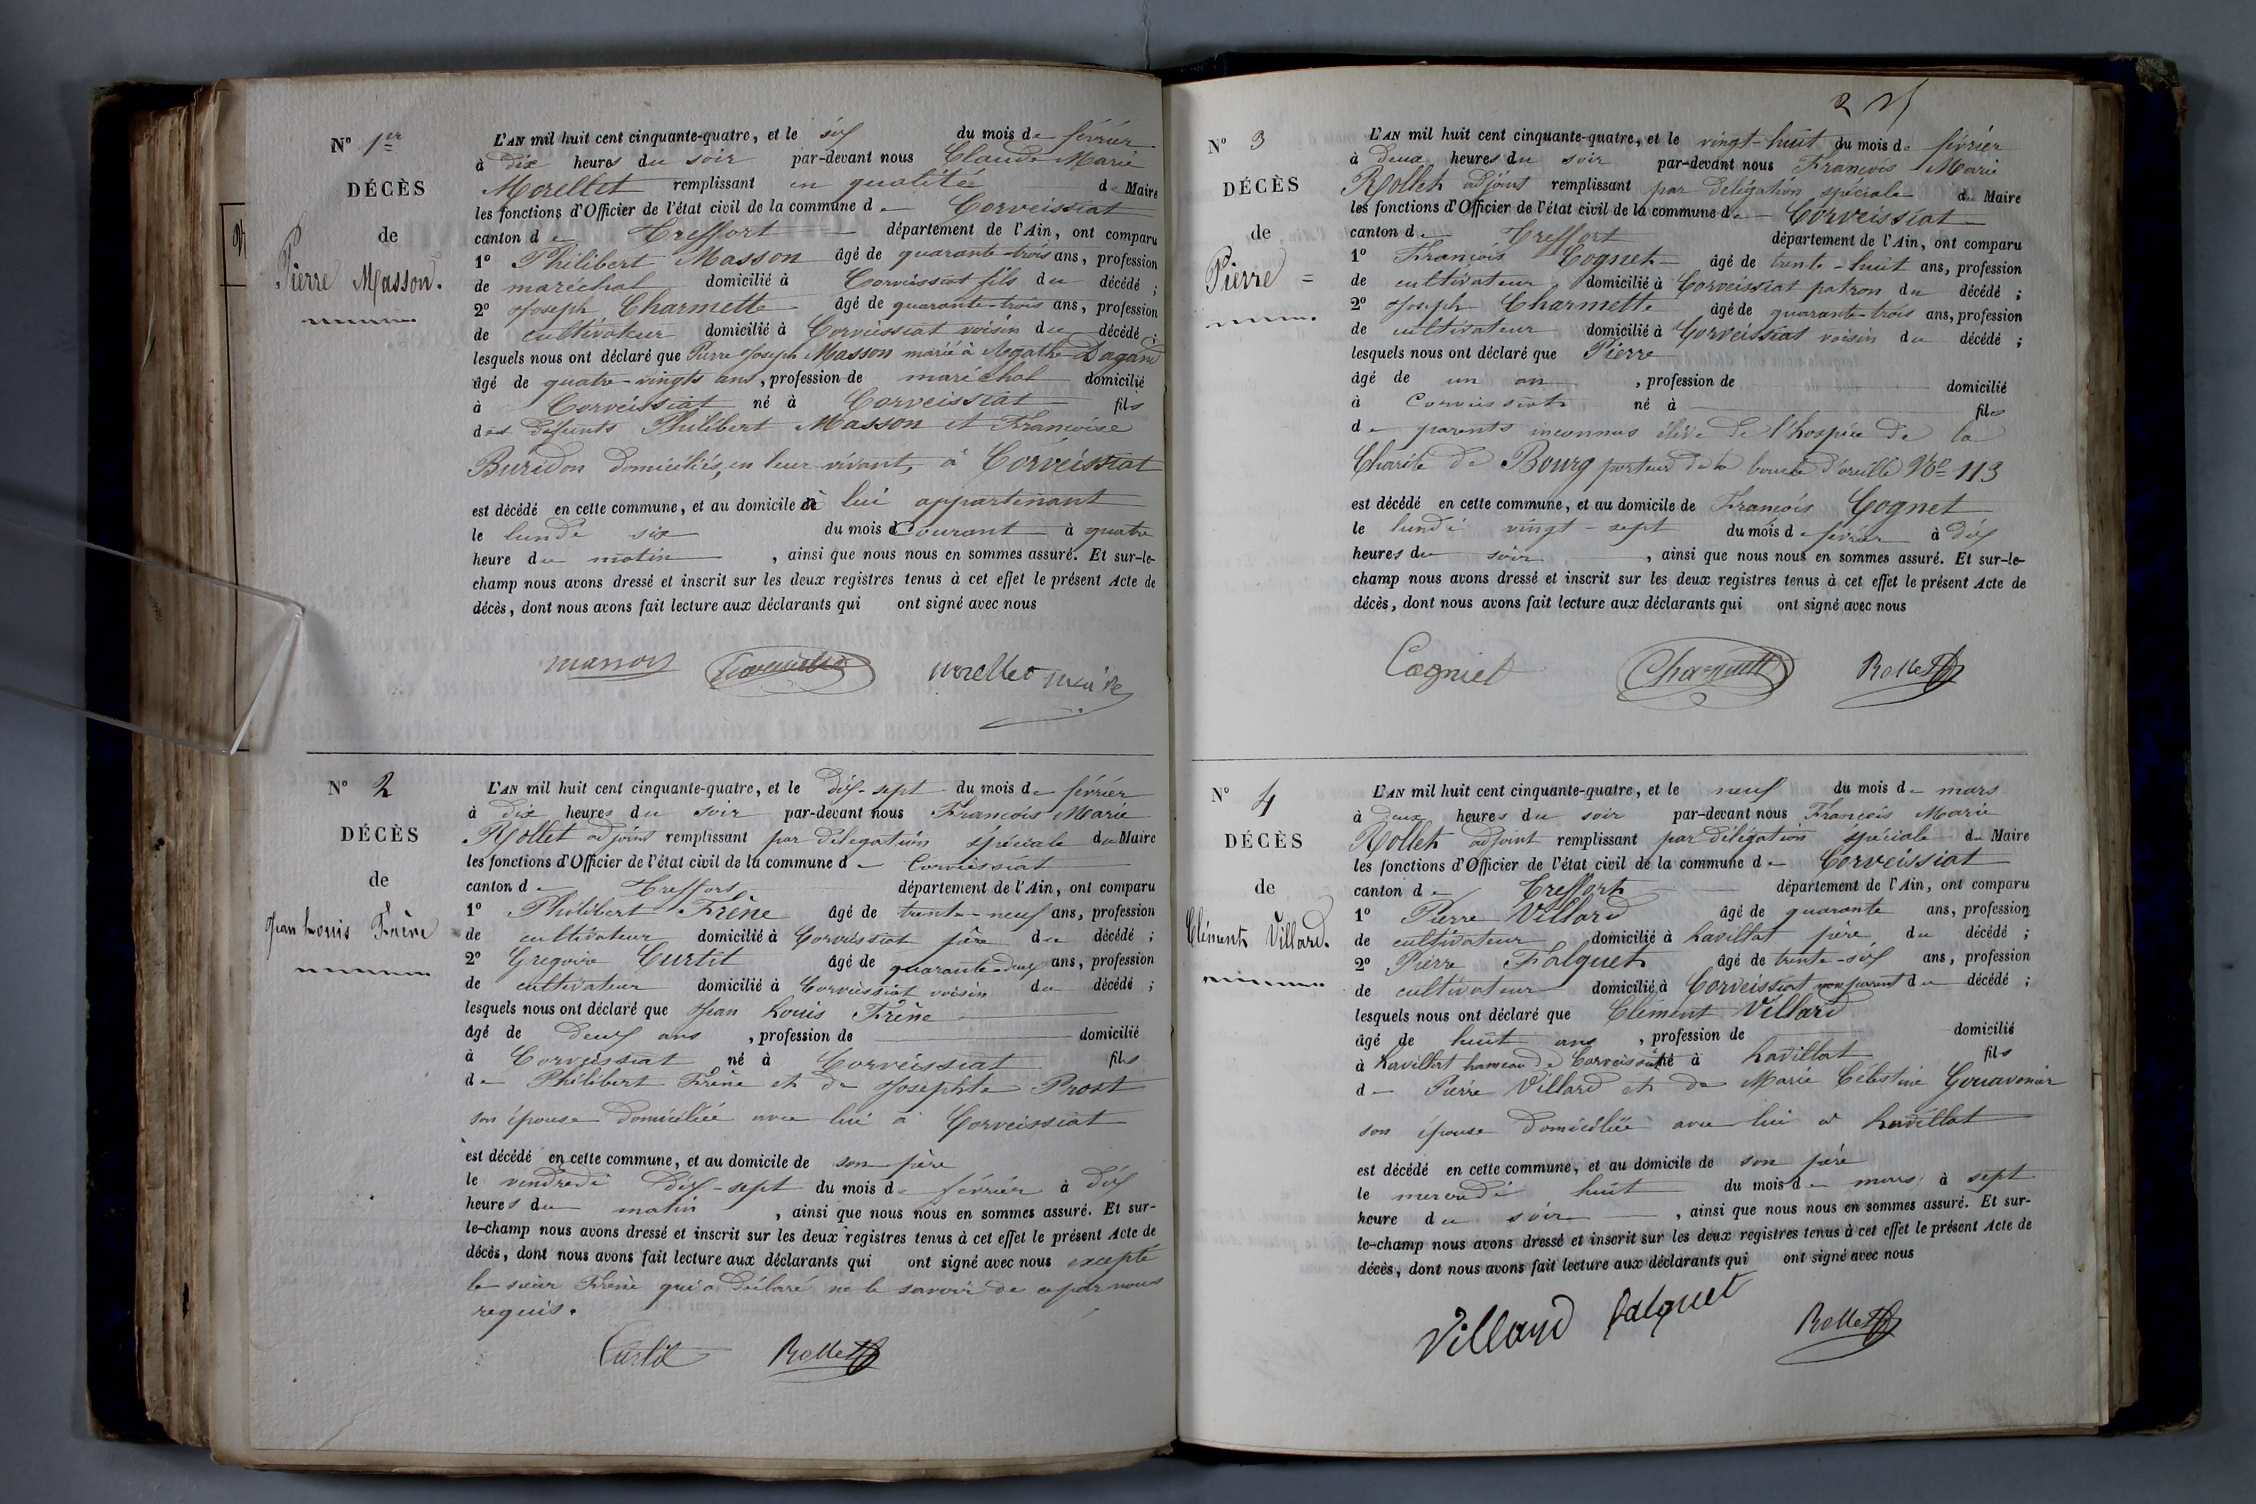 Nº 1er
DÉCÈS
de
Pierre Masson.
L'AN mil huit cent cinquante-quatre, et le six du mois de février
à dix heures du soir par-devant nous Claude Marie
Morellet remplissant en qualité de Maire
les fonctions d'Officier de l'état civil de la commune de Corveissiat
canton de Treffort département de l'Ain, ont comparu
1º Philibert Masson âgé de quarante-trois ans, profession
de maréchal domicilié à Corveissiat fils du décédé ;
2º Joseph Charmette âgé de quarante-trois ans, profession
de cultivateur domicilié à Corveissiat voisin du décédé ;
lesquels nous ont déclaré que Pierre Joseph Masson marié à Agathe Dagand
âgé de quatre-vingts ans, profession de maréchal domicilié
à Corveissiat né à Corveissiat fils
des défunts Philibert Masson et Francoise
Buridon domiciliés, en leur vivant, à Corveissiat
est décédé en cette commune, et au domicile à lui appartenant
le lundi six du mois courant à quatre
heure du matin, ainsi que nous nous en sommes assuré. Et sur-le-
champ nous avons dressé et inscrit sur les deux registres tenus à cet effet le présent Acte de
décès, dont nous avons fait lecture aux déclarants qui ont signé avec nous
masson morellet maire
Nº 2
DÉCÈS
de
Jean Louis Frène
L'AN mil huit cent cinquante-quatre, et le dix-sept du mois de février
à dix heures du soir par-devant nous Francois Marie
Rollet adjoint remplissant par délégation spéciale du Maire
les fonctions d'Officier de l'état civil de la commune de Corveissiat
canton de Treffort département de l'Ain, ont comparu
1º Philibert Frène âgé de trente-neuf ans, profession
de cultivateur domicilié à Corveissiat père du décédé ;
2º Gregoire Curtit âgé de quarante-deux ans, profession
de cultivateur domicilié à Corveissiat voisin du décédé ;
lesquels nous ont déclaré que Jean Louis Frène
âgé de deux ans, profession de domicilié
à Corveissiat né à Corveissiat fils
de Philibert Frène et de Josephte Prost
son épouse domiciliée avec lui à Corveissiat
est décédé en cette commune, et au domicile de son père
le vendredi dix-sept du mois de février à dix
heures du matin, ainsi que nous nous en sommes assuré. Et sur-
le-champ nous avons dressé et inscrit sur les deux registres tenus à cet effet le présent Acte de
décès, dont nous avons fait lecture aux déclarants qui ont signé avec nous excepté
le sieur Frène qui a déclaré ne le savoir de ce par nous
requis.
Curtit Rollet
Nº 3
DÉCÈS
de
Pierre =
L'AN mil huit cent cinquante-quatre, et le vingt-huit du mois de février
à deux heures du soir par-devant nous Francois Marie
Rollet adjoint remplissant par délégation spéciale du Maire
les fonctions d'Officier de l'état civil de la commune de Corveissiat
canton de Treffort département de l'Ain, ont comparu
1º Francois Cognet âgé de trente-huit ans, profession
de cultivateur domicilié à Corveissiat patron du décédé ;
2º Joseph Charmette âgé de quarante-trois ans, profession
de cultivateur domicilié à Corveissiat voisin du décédé ;
lesquels nous ont déclaré que Pierre
âgé de un an, profession de domicilié
à Corveissiat né à fils
de parents inconnus élève de l'hospice de la
Charité de Bourg porteur de la boucle d'oreille Nº 113
est décédé en cette commune, et au domicile de Francois Cognet
le lundi vingt-sept du mois de février à dix
heures du soir, ainsi que nous nous en sommes assuré. Et sur-le-
champ nous avons dressé et inscrit sur les deux registres tenus à cet effet le présent Acte de
décès, dont nous avons fait lecture aux déclarants qui ont signé avec nous
Cogniet Charmette Rollet
Nº 4
DÉCÈS
de
Clément Villard.
L'AN mil huit cent cinquante-quatre, et le neuf du mois de mars
à deux heures du soir par-devant nous Francois Marie
Rollet adjoint remplissant par délégation spéciale du Maire
les fonctions d'Officier de l'état civil de la commune de Corveissiat
canton de Treffort département de l'Ain, ont comparu
1º Pierre Villard âgé de quarante ans, profession
de cultivateur domicilié à Lavillat père du décédé ;
2º Pierre Falquet âgé de trente-six ans, profession
de cultivateur domicilié à Corveissiat non parent du décédé ;
lesquels nous ont déclaré que Clément Villard
âgé de huit ans, profession de domicilié
à Lavillat hameau de Corveissiat né à Lavillat fils
de Pierre Villard et de Marie Célestine
son épouse domiciliée avec lui à Lavillat
est décédé en cette commune, et au domicile de son père
le mercredi huit du mois de mars à sept
heure du soir, ainsi que nous nous en sommes assuré. Et sur-
le-champ nous avons dressé et inscrit sur les deux registres tenus à cet effet le présent Acte de
décès, dont nous avons fait lecture aux déclarants qui ont signé avec nous
Villard falquet Rollet